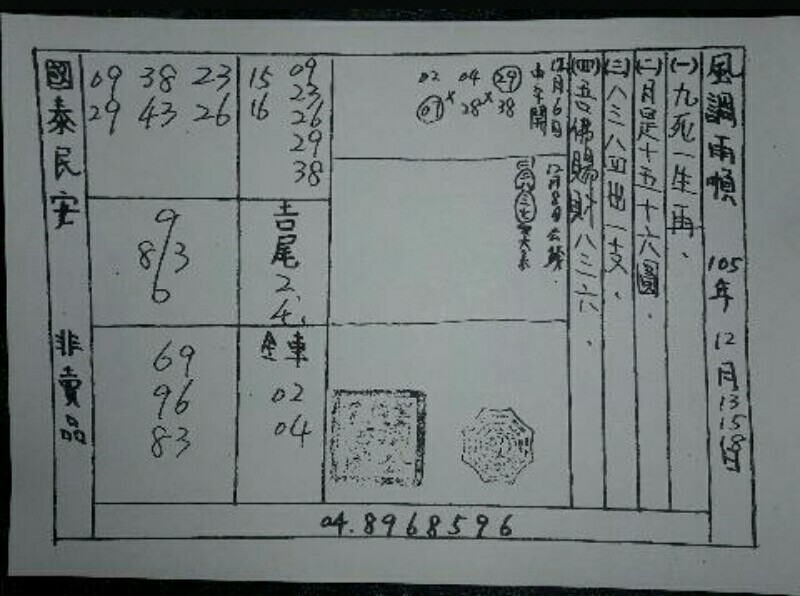 風調雨順 105年 12月13 15 18日
(一)九死一生再、
(二)月是十五十六圓.
(三)八三八四出一支.
(四)五佛賜財八三六、
12月6日
02 04 29
07 28 38
12月8日
09
23
15 26
16 29
38
吉尾2.4.
車
02
04
09 38 23
29 43 26
9
8/3
6
69
96
83
國泰民安 非賣品
04.8968596